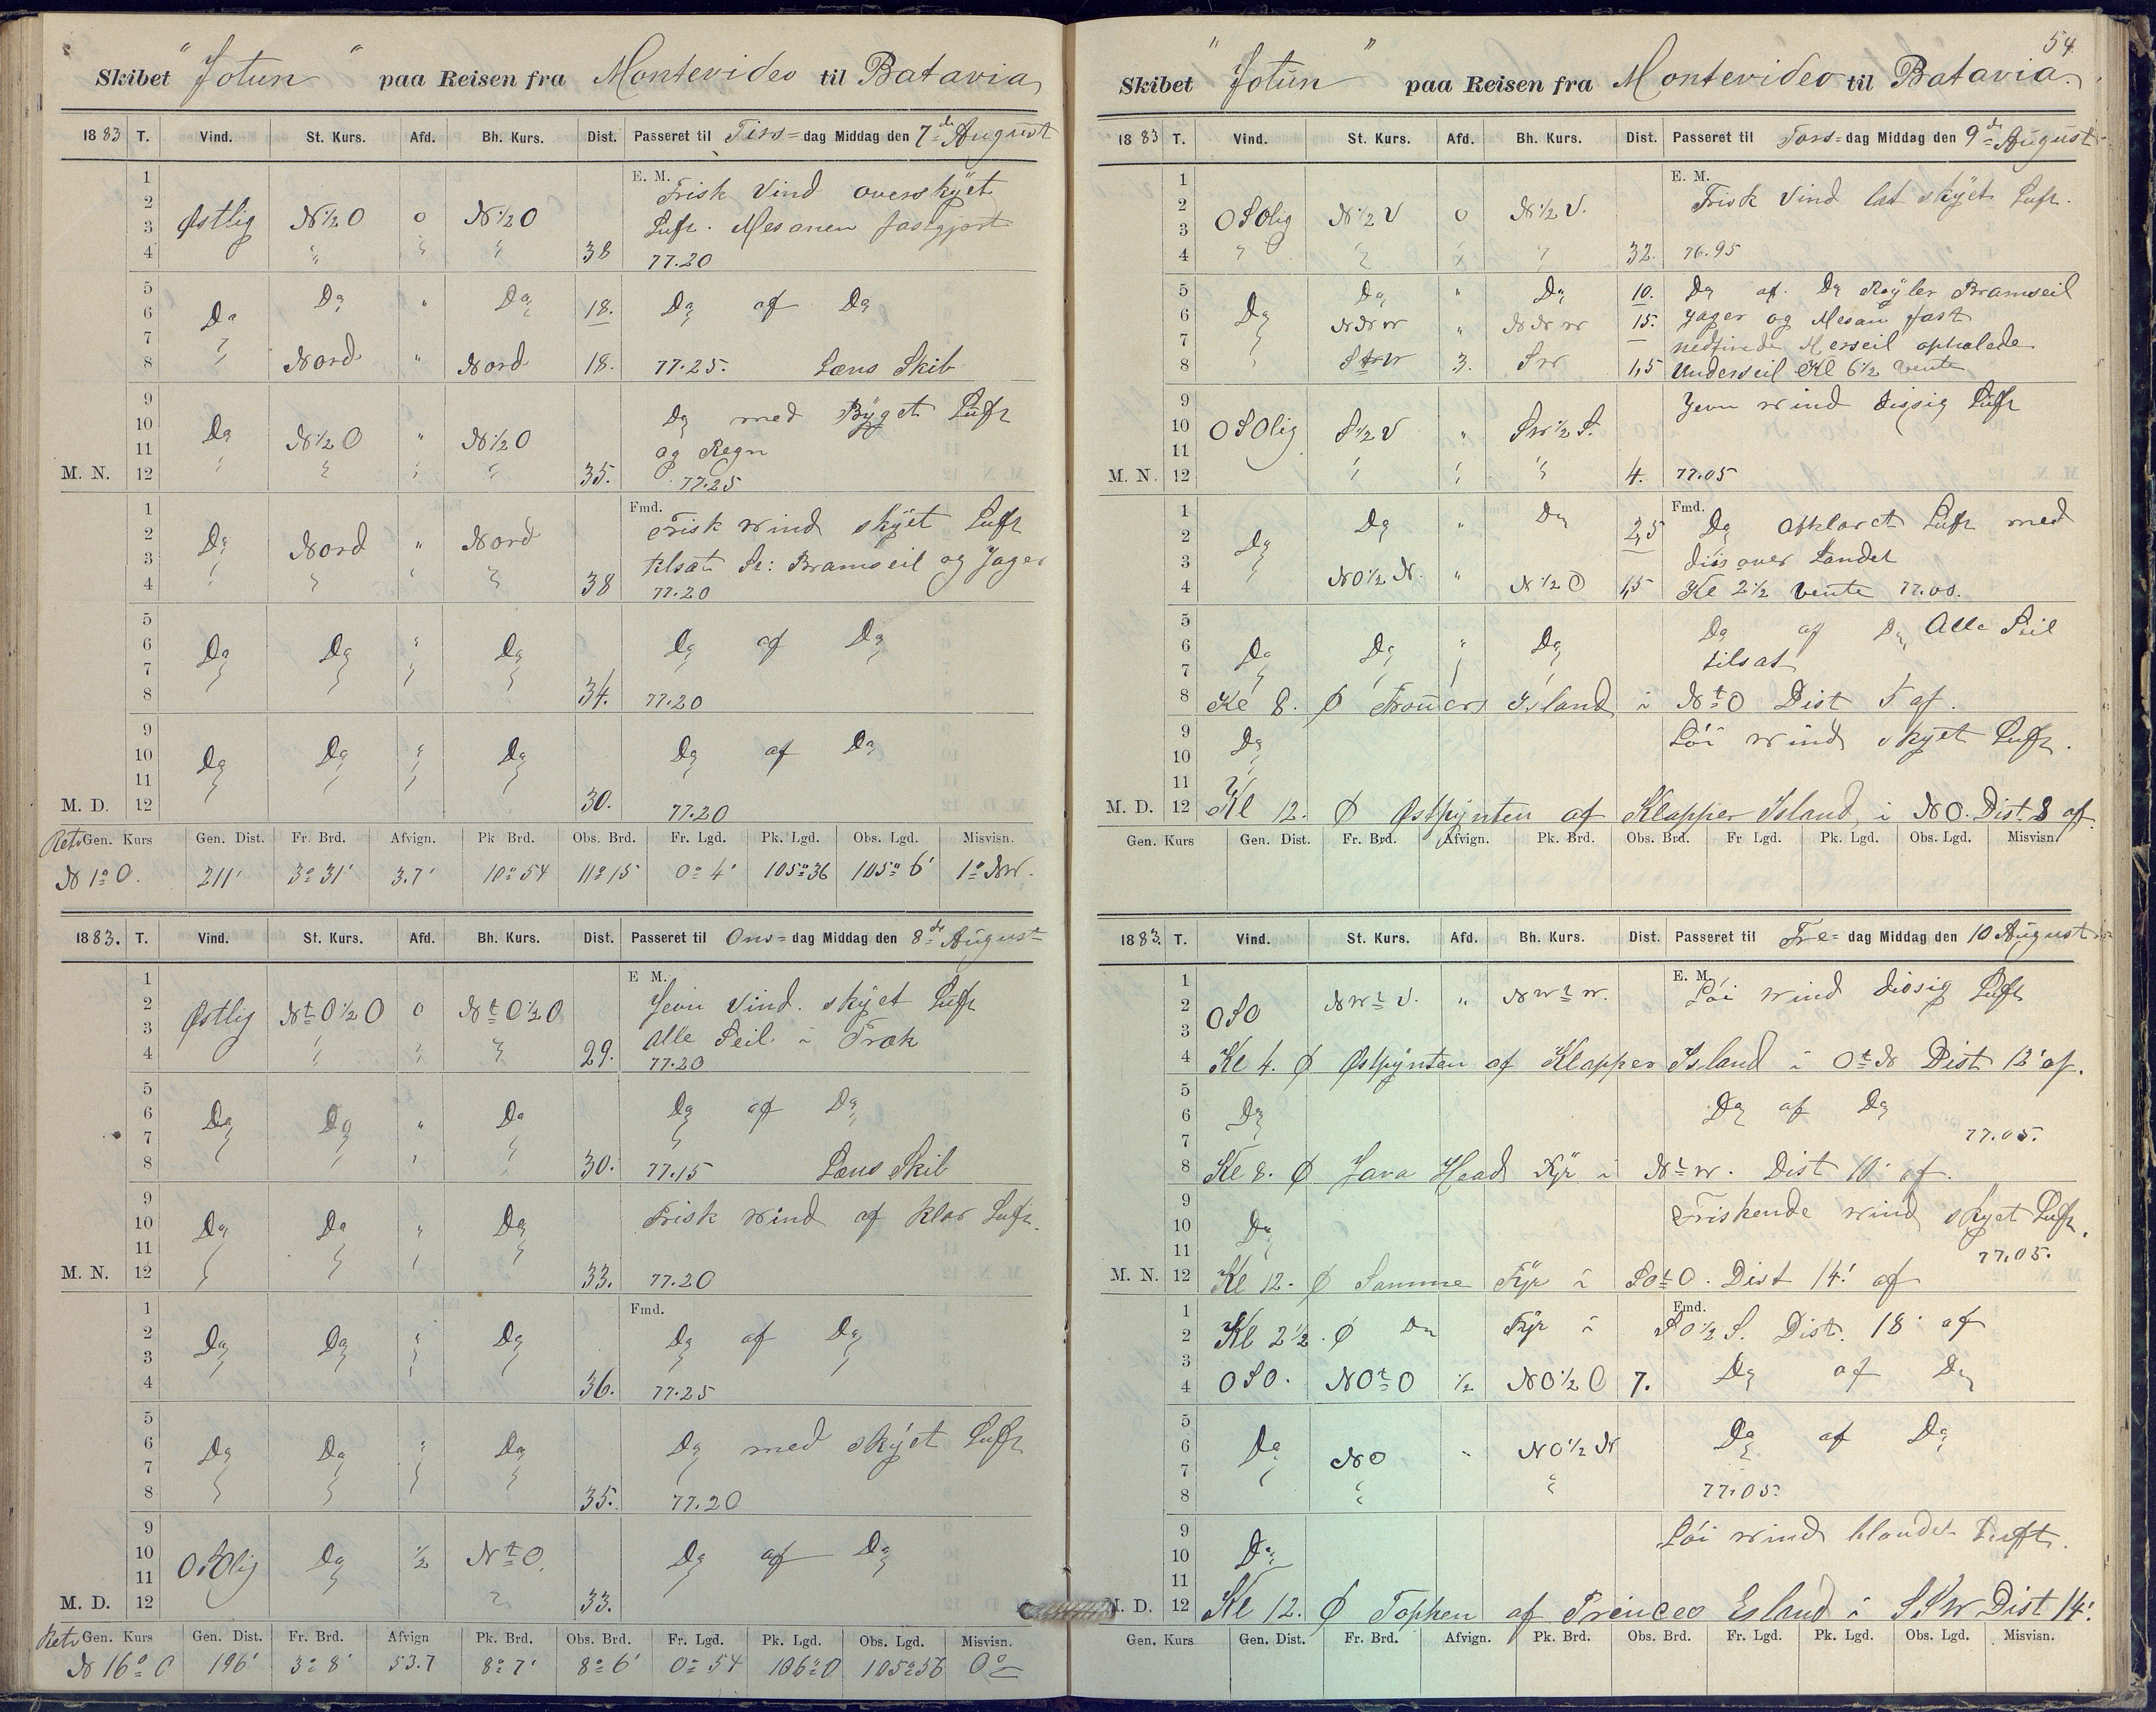 Skibet "Jotun" paa Reisen fra Montevideo til Batavia
1883 T. Vind. St. Kurs. Afd. Bh. Kurs. Dist. Passeret til Tirs=dag Middag den 7de August
1
E. M. Frisk Vind overskÿet
2
3 Østlig N½O 0 N½O Luft. Mesanen fastgjort
4 " " " 38 77.20
5
6 Do Do " Do 18. Do af Do
7
8 Nord " Nord 18. 77.25. Læns Skib
9
10 Do med Byget Luft
11 Do N½O " N½O og Regn
M. N. 12 35. 77.25
1
Fmd. Frisk Wind skÿet Luft
2
3 Do Nord " Nord tilsat St: Bramseil og Jager
4 38 77.20
5
6 Do Do " Do Do af Do
7
8 34. 77.20
9
10 Do Do Do Do af Do
11
M. D. 12 30. 77.20
Retv Gen. Kurs Gen. Dist. Fr. Brd. Afvign. Pk Brd. Obs. Brd. Fr. Lgd. Pk. Lgd. Obs. Lgd. Misvisn.
N 1° O. 211' 3° 31' 3.7' 10° 54 11° 15 0° 4' 105° 36 105° 6' 1° NW.
1883. T. Vind. St. Kurs. Afd. Bh. Kurs. Dist. Passeret til Ons=dag Middag den 8de August
1
E M. Jevn Vind. skÿet Luft
2
3 Østlig NtO½O 0 NtO½O Alle Seil i Træk
4 29. 77.20
5
6 Do Do " Do Do af Do
7
8 30. 77.15 Læns Skib
9
10 Do Do " Do Frisk Wind af klar Luft.
11
M. N. 12 33. 77.20
1
Fmd.
2 Do Do Do Do af Do
3
4 36. 77.25
5
6 Do Do Do Do med skÿet Luft
7
8 35. 77.20
9
10 OSOlig Do ½ NtO. Do af Do
11
M. D. 12 33.
Retv Gen. Kurs Gen. Dist. Fr. Brd. Afvign Pk. Brd. Obs. Brd. Fr. Lgd. Pk. Lgd. Obs. Lgd. Misvisn.
N 16° O 196' 3° 8' 53.7 8° 7' 8° 6' 0° 54 106° 0 105° 56 0°
54
Skibet "Jotun" paa Reisen fra Montevideo til Batavia.
1883 T. Vind. St. Kurs. Afd. Bh. Kurs. Dist. Passeret til Tors=dag Middag den 9de August
1
E. M. Frisk Vind let skÿet Luft.
2
3 OSOlig N½V 0 N½V.
4 32. 76.95
5 Do " Do 10. Do af. Do Røyler Bramseil
6 Do NNW " NNW 15. Jager og Mesan fast
7 nedfirede Merseil ophalede
8 3. SW 1,5 Underseil Kl 6½ vente
9
Jevn Wind disig Luft
10 OSOlig S½V " SW½S.
11
M. N. 12 4. 77.05
1
Fmd. Do opklaret Luft med
2 Do Do " Do 2,5
3 diis over Landet
4 NO½N. " N½O 1,5 Kl 2½ vente 77.00.
5
6 Do Do " Do Do af Do Alle Seil
7 tilsat
8 Kl 8. Ø Island i NtO Dist 5 af.
9 Do Løi Wind skÿet Luft.
10
11
M. D. 12 Kl 12. Ø Østpynten af Klapper Island, i NO. Dist 8 af.
Gen. Kurs Gen. Dist. Fr. Brd. Afvign. Pk. Brd. Obs. Brd. Fr Lgd. Pk. Lgd. Obs. Lgd. Misvisn.
1883. T. Vind. St. Kurs. Afd. Bh. Kurs. Dist. Passeret til Fre=dag Middag den 10 August
1
E. M. Løi Wind disig Luft
2 OSO NWtV. " NWtW.
3
4 Kl 4. Ø Østpynten af Klapper Island i OtN Dist 12' af.
5
6 Do Do af Do
7 77.05.
8 Kl 8. Ø Java Head Fÿr i NtW. Dist 10' af.
9 Friskende Wind skÿet Luft.
10 Do
11 77.05.
M. N. 12 Kl 12. Ø Samme Fÿr i SOtO. Dist 14' af
1
Fmd.
2 Kl 2½. Ø Do Fÿr i SO½S. Dist. 18' af
3
4 OSO. NOtO ½ NO½O 7. Do af Do
5
6 Do NO " NO½N Do af Do
7
8 77.05.
9 Løi Wind blandet Luft.
10 Do
11
M. D. 12 Kl 12. Ø Topken af Princes Esland i SSW Dist 14'.
Gen. Kurs Gen. Dist. Fr. Brd. Afvign. Pk. Brd. Obs. Brd. Fr. Lgd. Pk. Lgd. Obs. Lgd. Misvisn.